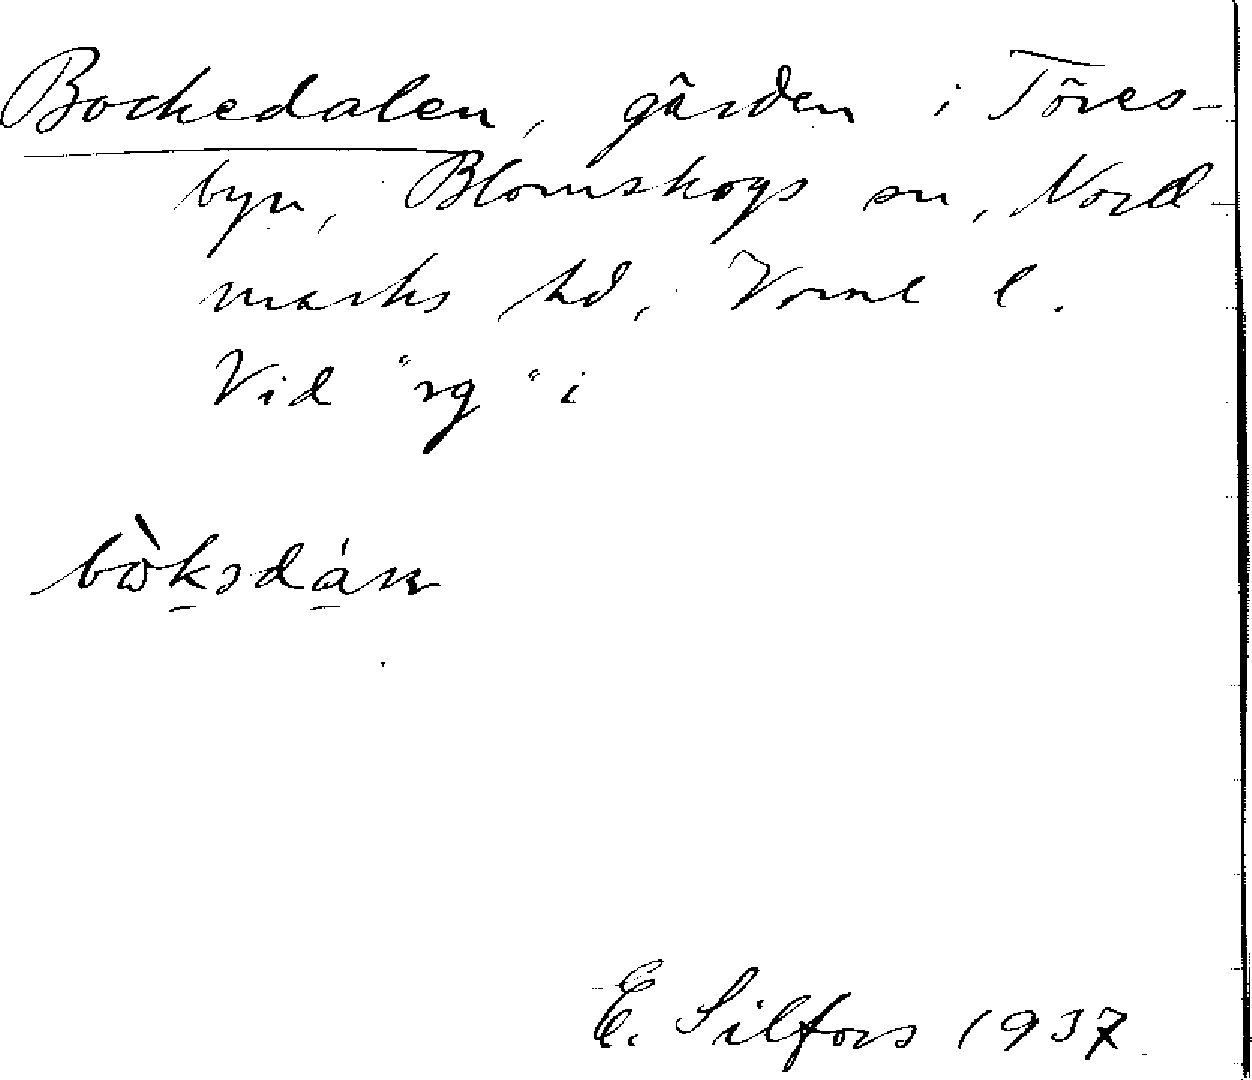 Bockedalen, gården i Töres-
byn, Blomskogs sn, Nord-
marks hd, Värml l.
Vid "rg" i
bὼksdán
E. Silfors 1937